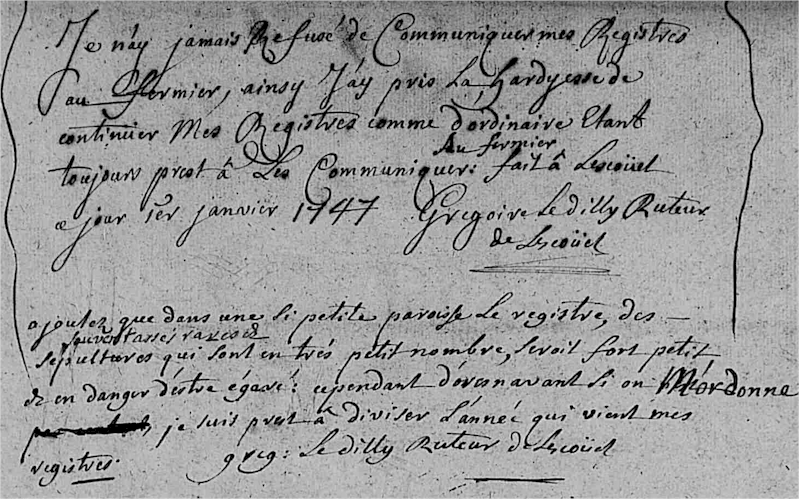 Je n'ay jamais Refusé de Communiquer mes Registres
au fermier, ainsy J'ay pris La Hardyesse de
continuer Mes Registres comme d'ordinaire Etant
au fermier
toujours prest â Les Communiquer: fait â Lescoüet
ce jour 1er janvier 1747 Gregoire Le dilly Recteur
de Lescoüet
ajoutez que dans une si petite paroisse Le registre, des
souvent asses rares et
sepultures qui sont en trés petit nombre, seroit fort petit
& en danger d'éstre égaré: cependant d'oresnavant si on M'éordonne
je suis prest â diviser L'année qui vient mes
registres. greg: Le dilly Recteur de Lescoüet